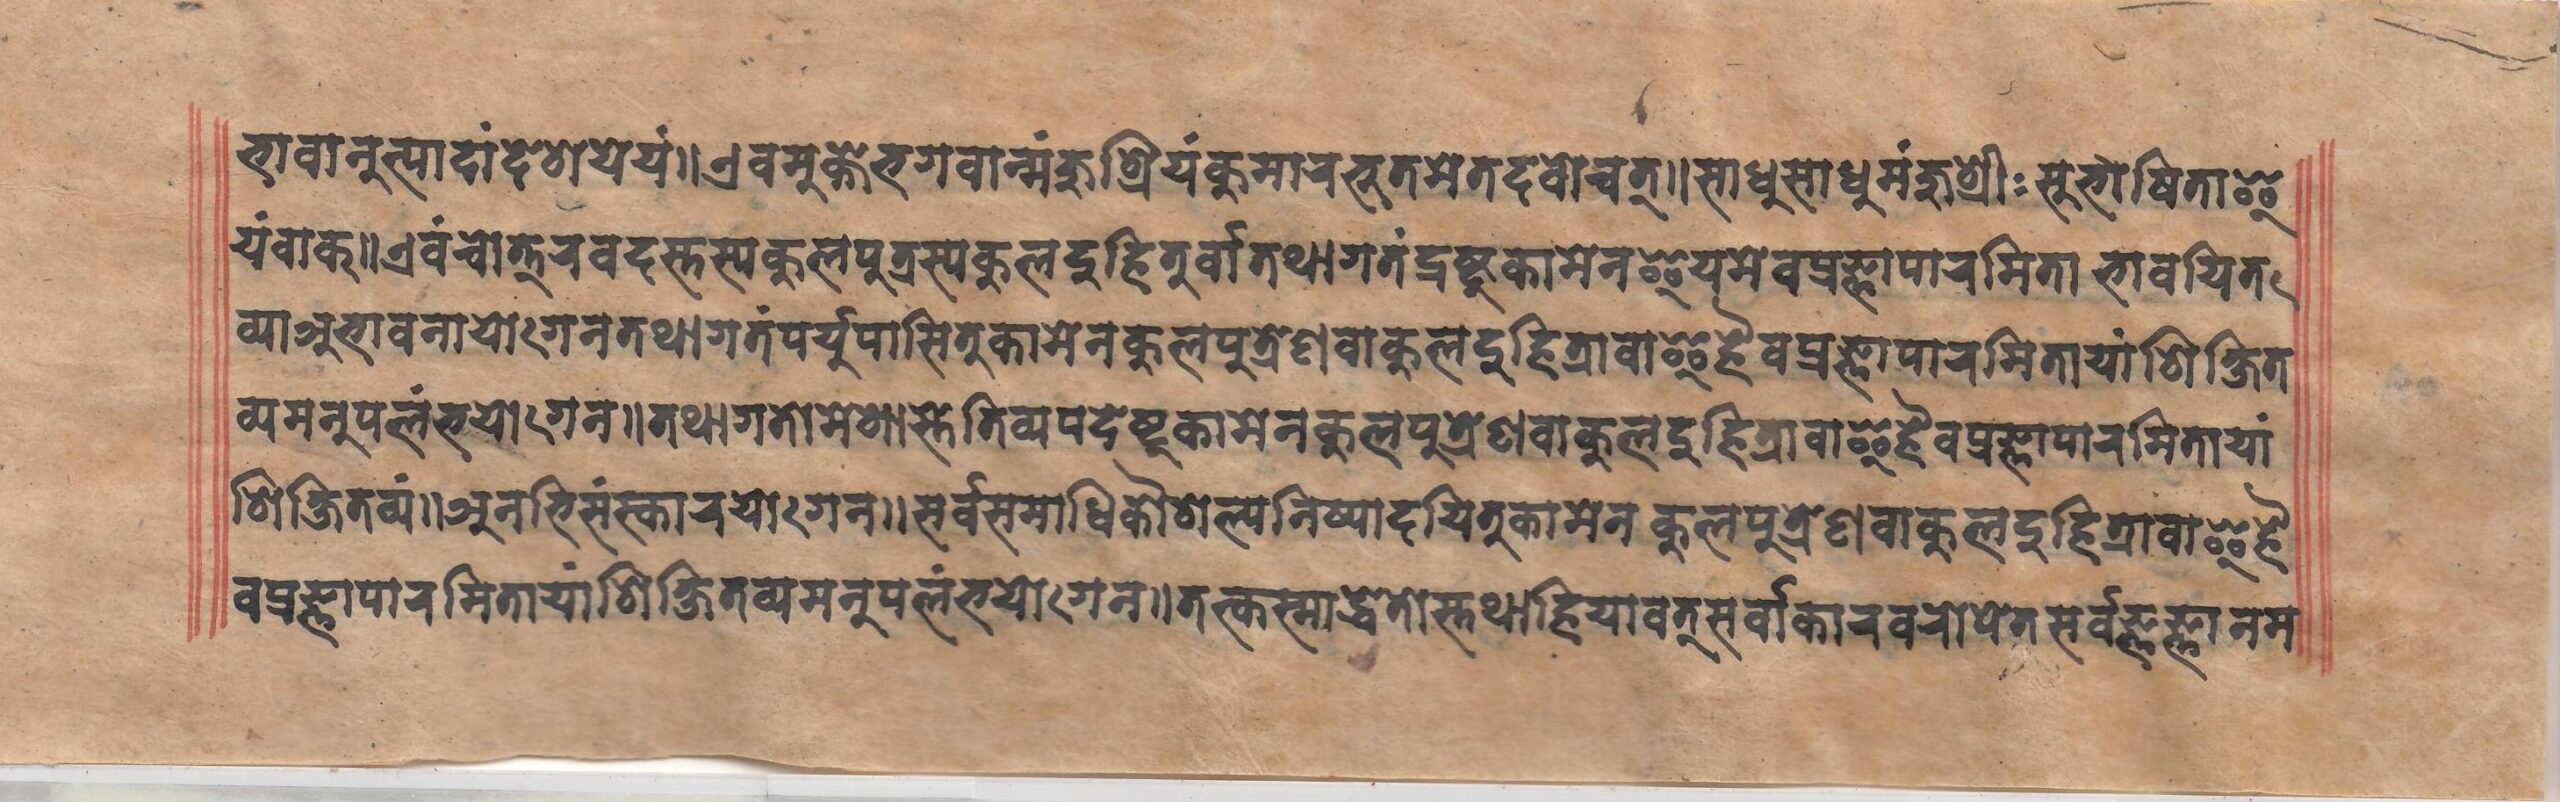 भावानुत्पादांदेशयेयं॥एवमुक्तेभगवान्मंजुश्रियंकुमारभूतमेतदवोचत्॥साधुसाधुमंजुश्रीःसुभाषिताइ
यंवाक्॥एवंचोत्तरवदस्तस्यकुलपुत्रस्यकुलदुहितुर्वातथागतंद्रष्टुकामेनइयमेवप्रज्ञापारमिताभावयित
व्याअभावनायोगेनतथागतंपर्युपासितुकामेनकुलपुत्रेणवाकुलदुहित्रावाइहैवप्रज्ञापारमितायांशिक्षित
व्यमनुपलंभयोगेन॥तथागतोमेशास्तेतिव्यपदेष्टुकामेनकुलपुत्रेणवाकुलदुहित्रावाइहैवप्रज्ञापारमितायां
शिक्षितव्यं॥अनभिसंस्कारयोगेन॥सर्वसमाधिकौशल्यनिष्पादयितुकामेनकुलपुत्रेणवाकुलदुहित्रावाइहै
वप्रज्ञापारमितायांशिक्षितव्यमनुपलंभयोगेन॥तत्कस्माद्धेतोस्तथाहियावत्सर्वाकारवरोपेतसर्वज्ञज्ञानम